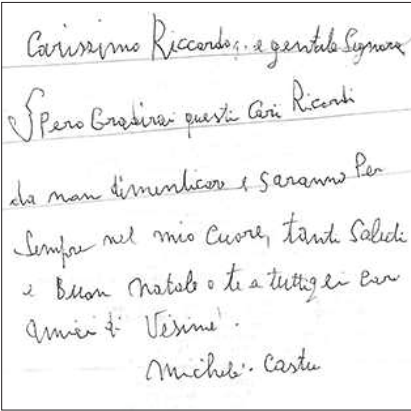 Carissimo Riccardo, e gentile Signora
Spero Gradirai questi Cari Ricordi
da non dimenticare e saranno Per
Sempre nel mio Cuore, tanti Saluti
e Buon Natale a te a tutti gli cari
amici di Vesime.
Michele